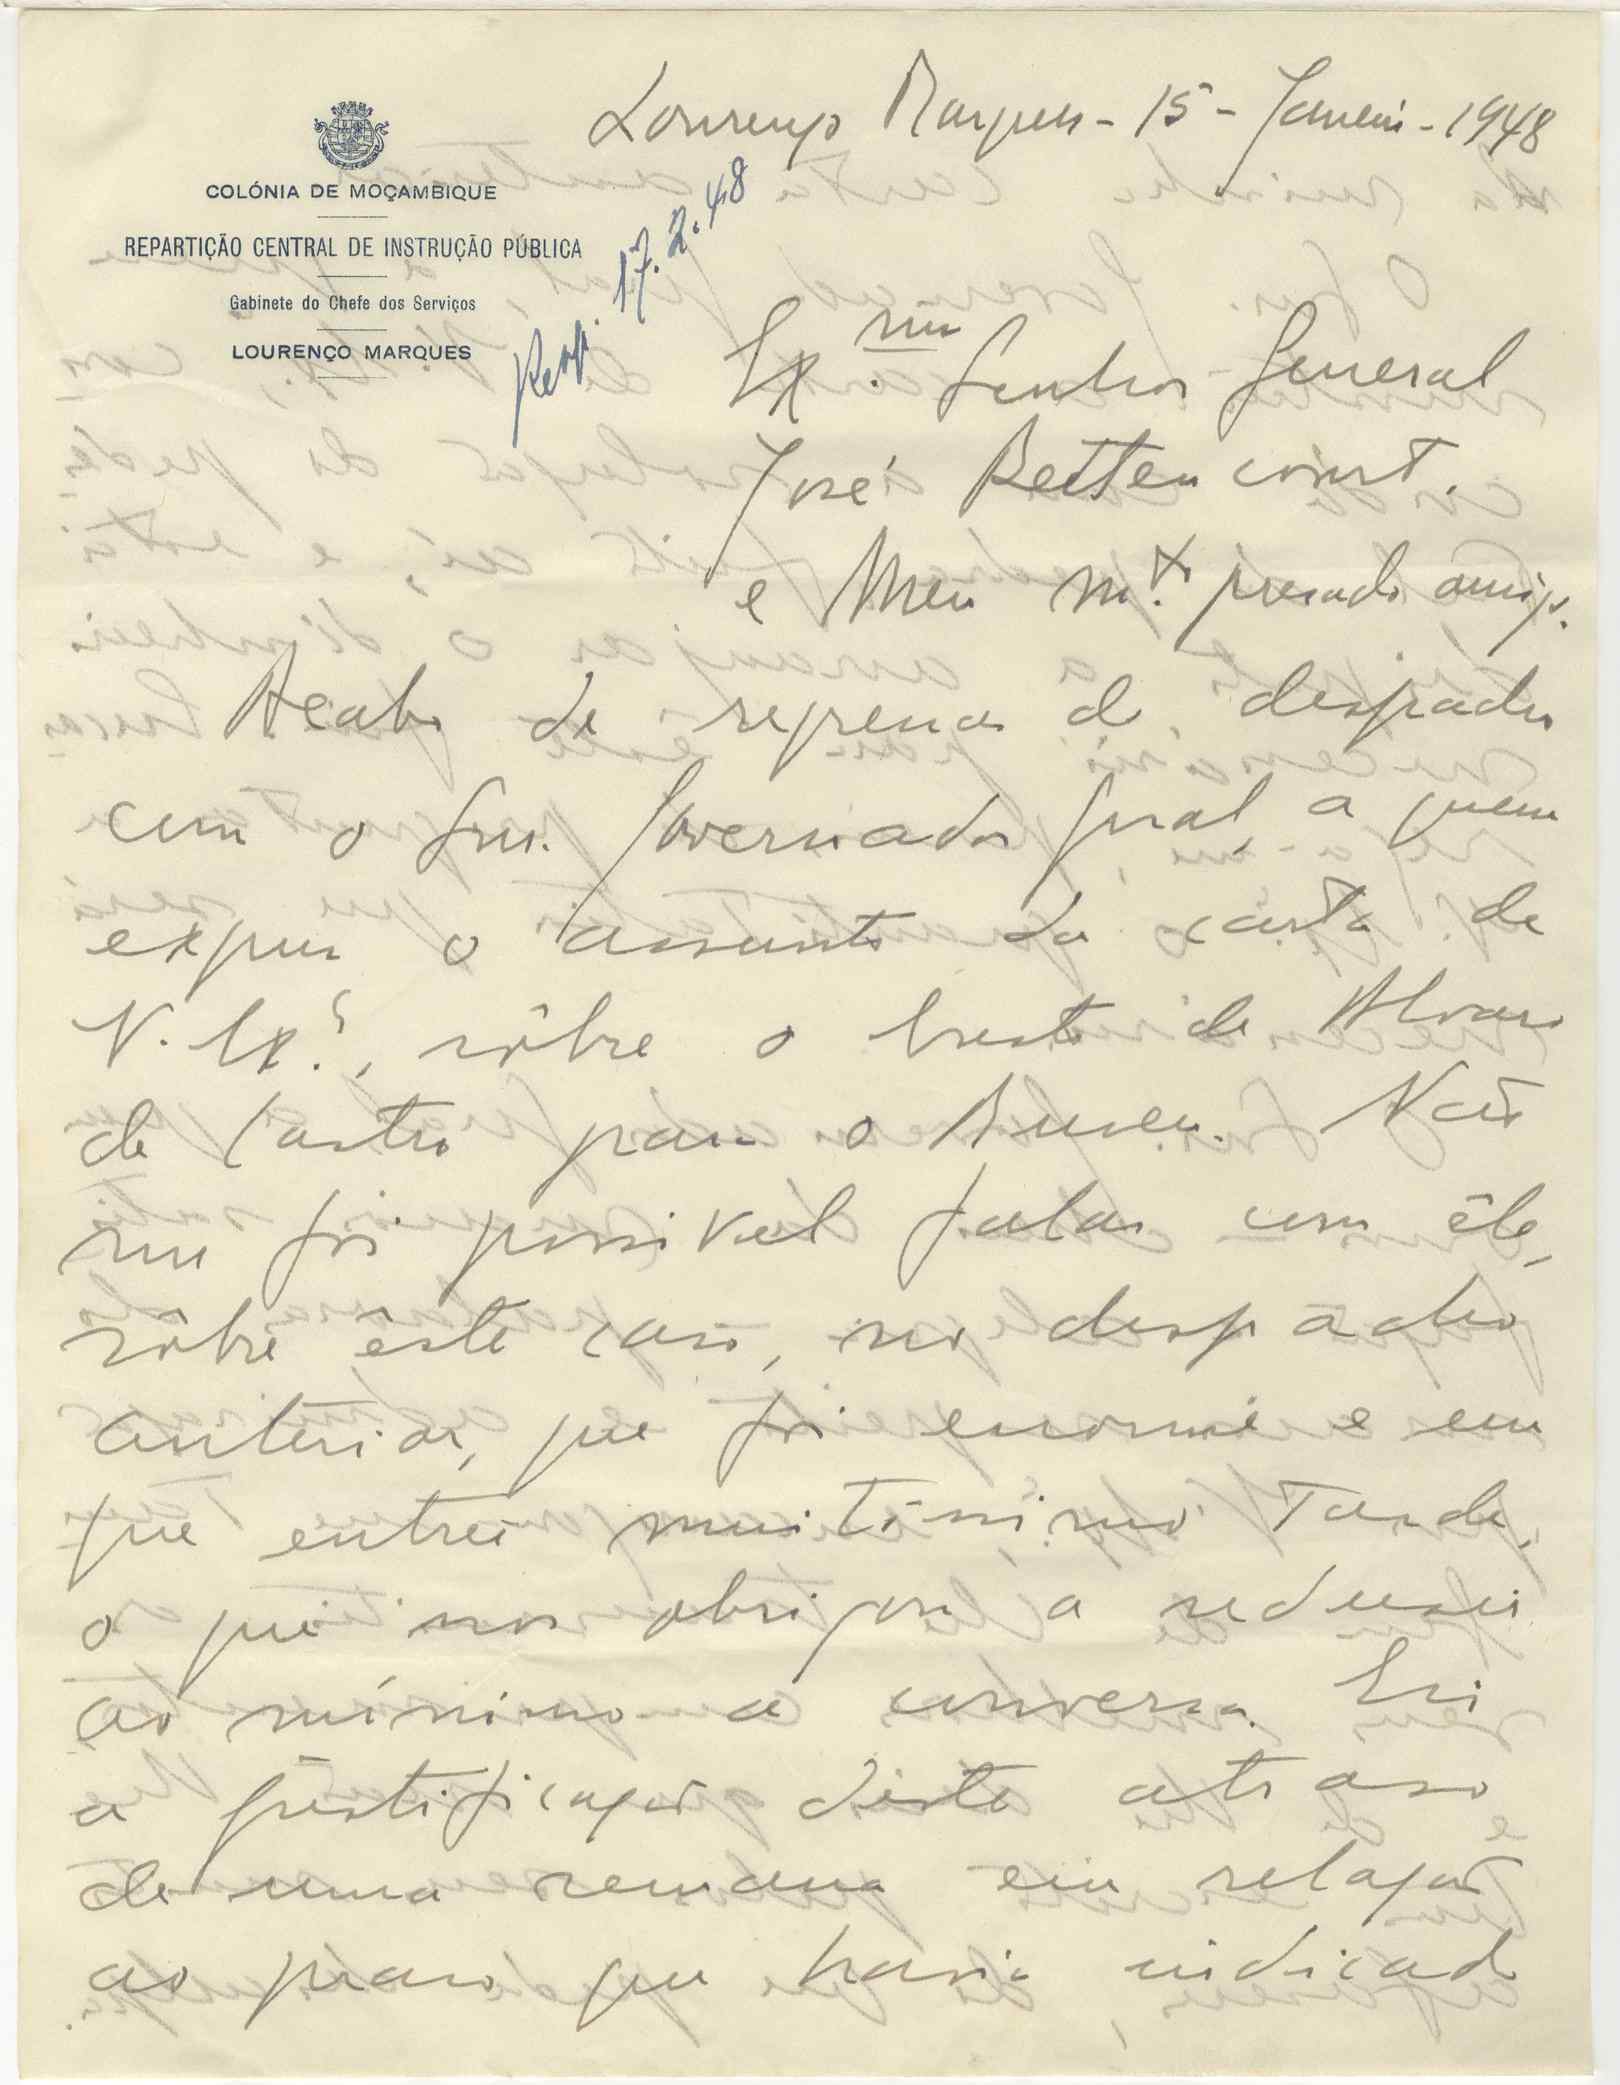 Lourenço Marques - 15 - Janeiro - 1948
COLÓNIA DE MOÇAMBIQUE
REPARTIÇÃO CENTRAL DE INSTRUÇÃO PÚBLICA
Gabinete do Chefe dos Serviços
LOURENÇO MARQUES
Resp. 17.2.48
Ex.mo Senhor General
José Bettencourt.
e Meu m.to presado amigo.
Acabo de regressar do despacho
com o Snr. Governador Geral, a quem
expus o assunto da carta de
V. Ex.ª, sôbre o busto de Alvaro
de Castro para o Museu. Não
me foi possivel falar com êle,
sôbre êste caso, no despacho
anterior, que foi enorme e em
que entrei muitissimo tarde,
o que nos obrigou a reduzir
ao mínimo a conversa. Eis
a justificação dêste atraso
de uma semana em relação
ao praso que havia indicado